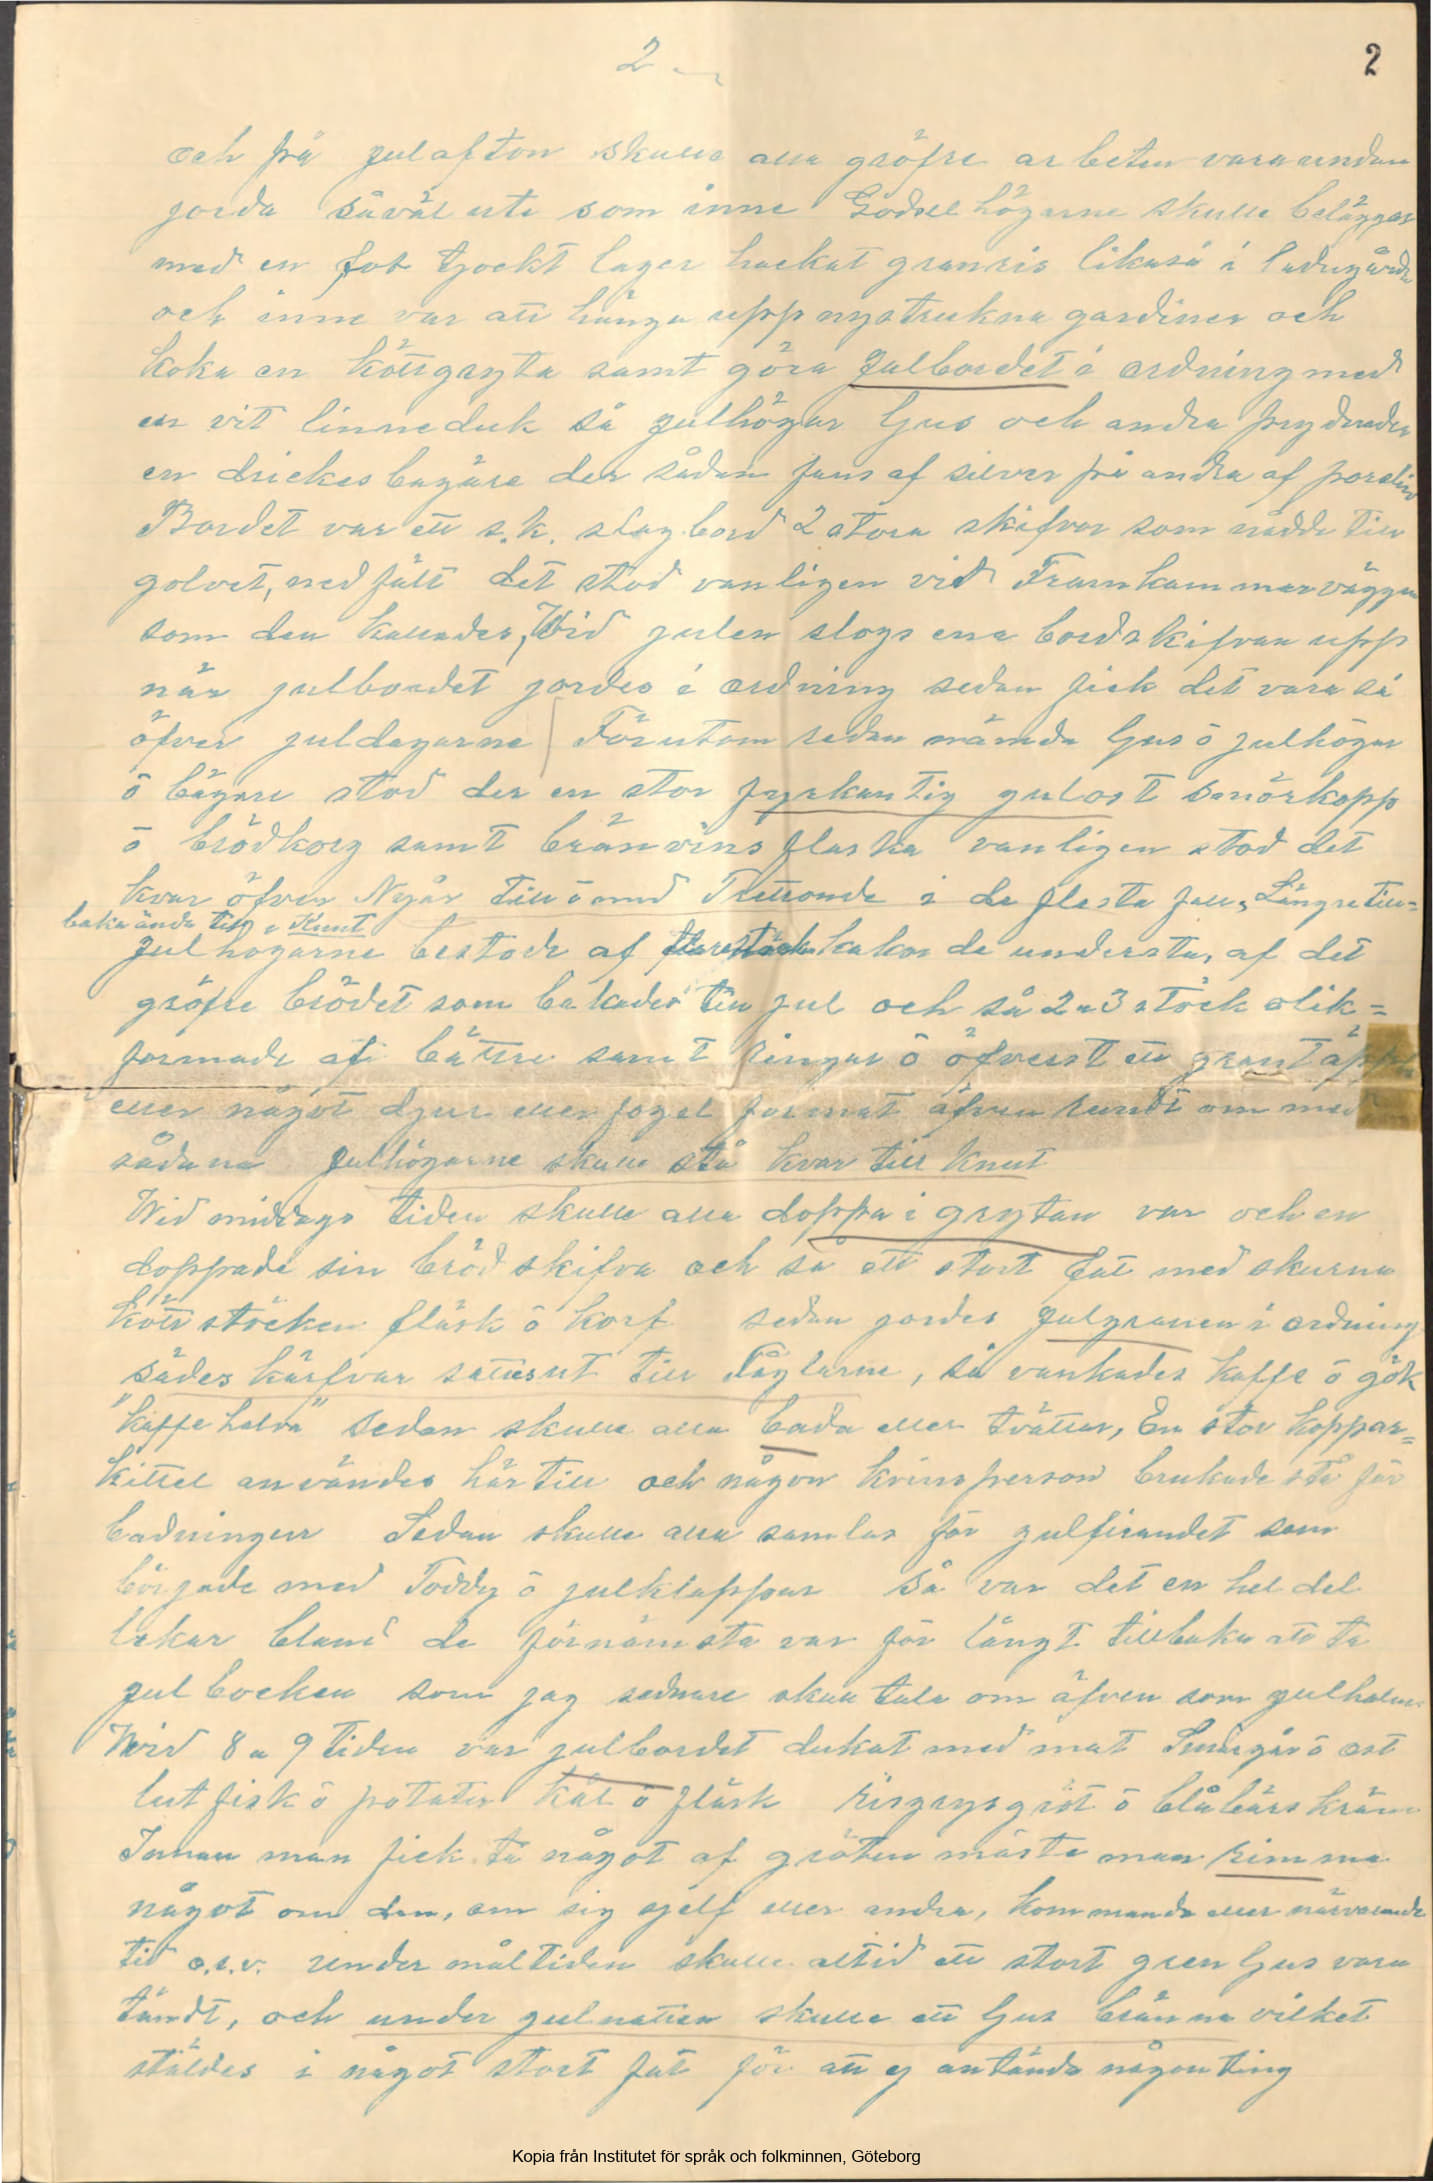 2
2
och på julafton skulle alla gröfre arbeten vara undan
jorda såväl ute som inne Gödsel högarne skulle beläggas
med en fot tjockt lager hackat granris likaså i ladugården
och inne var att hänga upp nystrukna gardiner och
koka en köttgryta samt göra julbordet i ordning med
en vit linneduk så julhögar ljus och andra prydnader
en drickes bägare der sådan fans af silver på andra af porslin
Bordet var ett s.k. slagbord 2 stora skifvor som nådde till
golvet, nedfält det stod vanligen vid Framkammarväggen
som den kallades, Wid julen slogs ena bordskifvan upp
när julbordet jordes i ordning sedan fick det vara så
öfver juldagarne Förutom sedan nämda ljus ō julhögar
ō bägare stod der en stor fyrkantig julost smörkopp
ō brödkorg samt bränvins flaska vanligen stod det
kvar öfver Nyår till ō med Trettonde i de flesta fall, Längre till=
baka ända till Knut
julhogarne bestode af kakor de understa, af det
gröfre brödet som bakades till jul och så 2 a 3 stöck olik=
formade af bättre samt ringar ō öfverst ett grant äpple
eller något djur eller fogel format äfven rundt om med
sådana julhögarne skulle stå kvar till Knut
Wid middags tiden skulle alla doppa i grytan var och en
doppade sin bröd skifva och så ett stort fat med skurna
kött stöcken fläsk ō korf sedan jordes julgranen i ordning
sädes kärfvar sattes ut till Fåglarne, så vankades kaffe ō gök
"kaffe halva" sedan skulle alla bada eller tvättas, En stor koppar=
kittel användes här till och någon kvinsperson brukade stå för
badningen Sedan skulle alla samlas för julfirandet som
började med Toddy ō julklappar Så var det en hel del
lekar bland de förnämsta var för långt tillbaka att ta
julbocken som jag sednare skall tala om äfven som julhalm
Wid 8 a 9 tiden var julbordet dukat med mat Smörgås ō ost
lutfisk ō potatis kål ō fläsk Risgrynsgröt ō blåbärs kräm
Innan man fick ta något af gröten måste man rimma
något om den, om sig sjelf eller andra, kommande eller närvarande
tid o.s.v. under måltiden skulle altid ett stort gren ljus vara
tändt, och under julnatten skulle ett ljus bränna vilket
stäldes i något stort fat för att ej antända någonting
Kopia från Institutet för språk och folkminnen, Göteborg